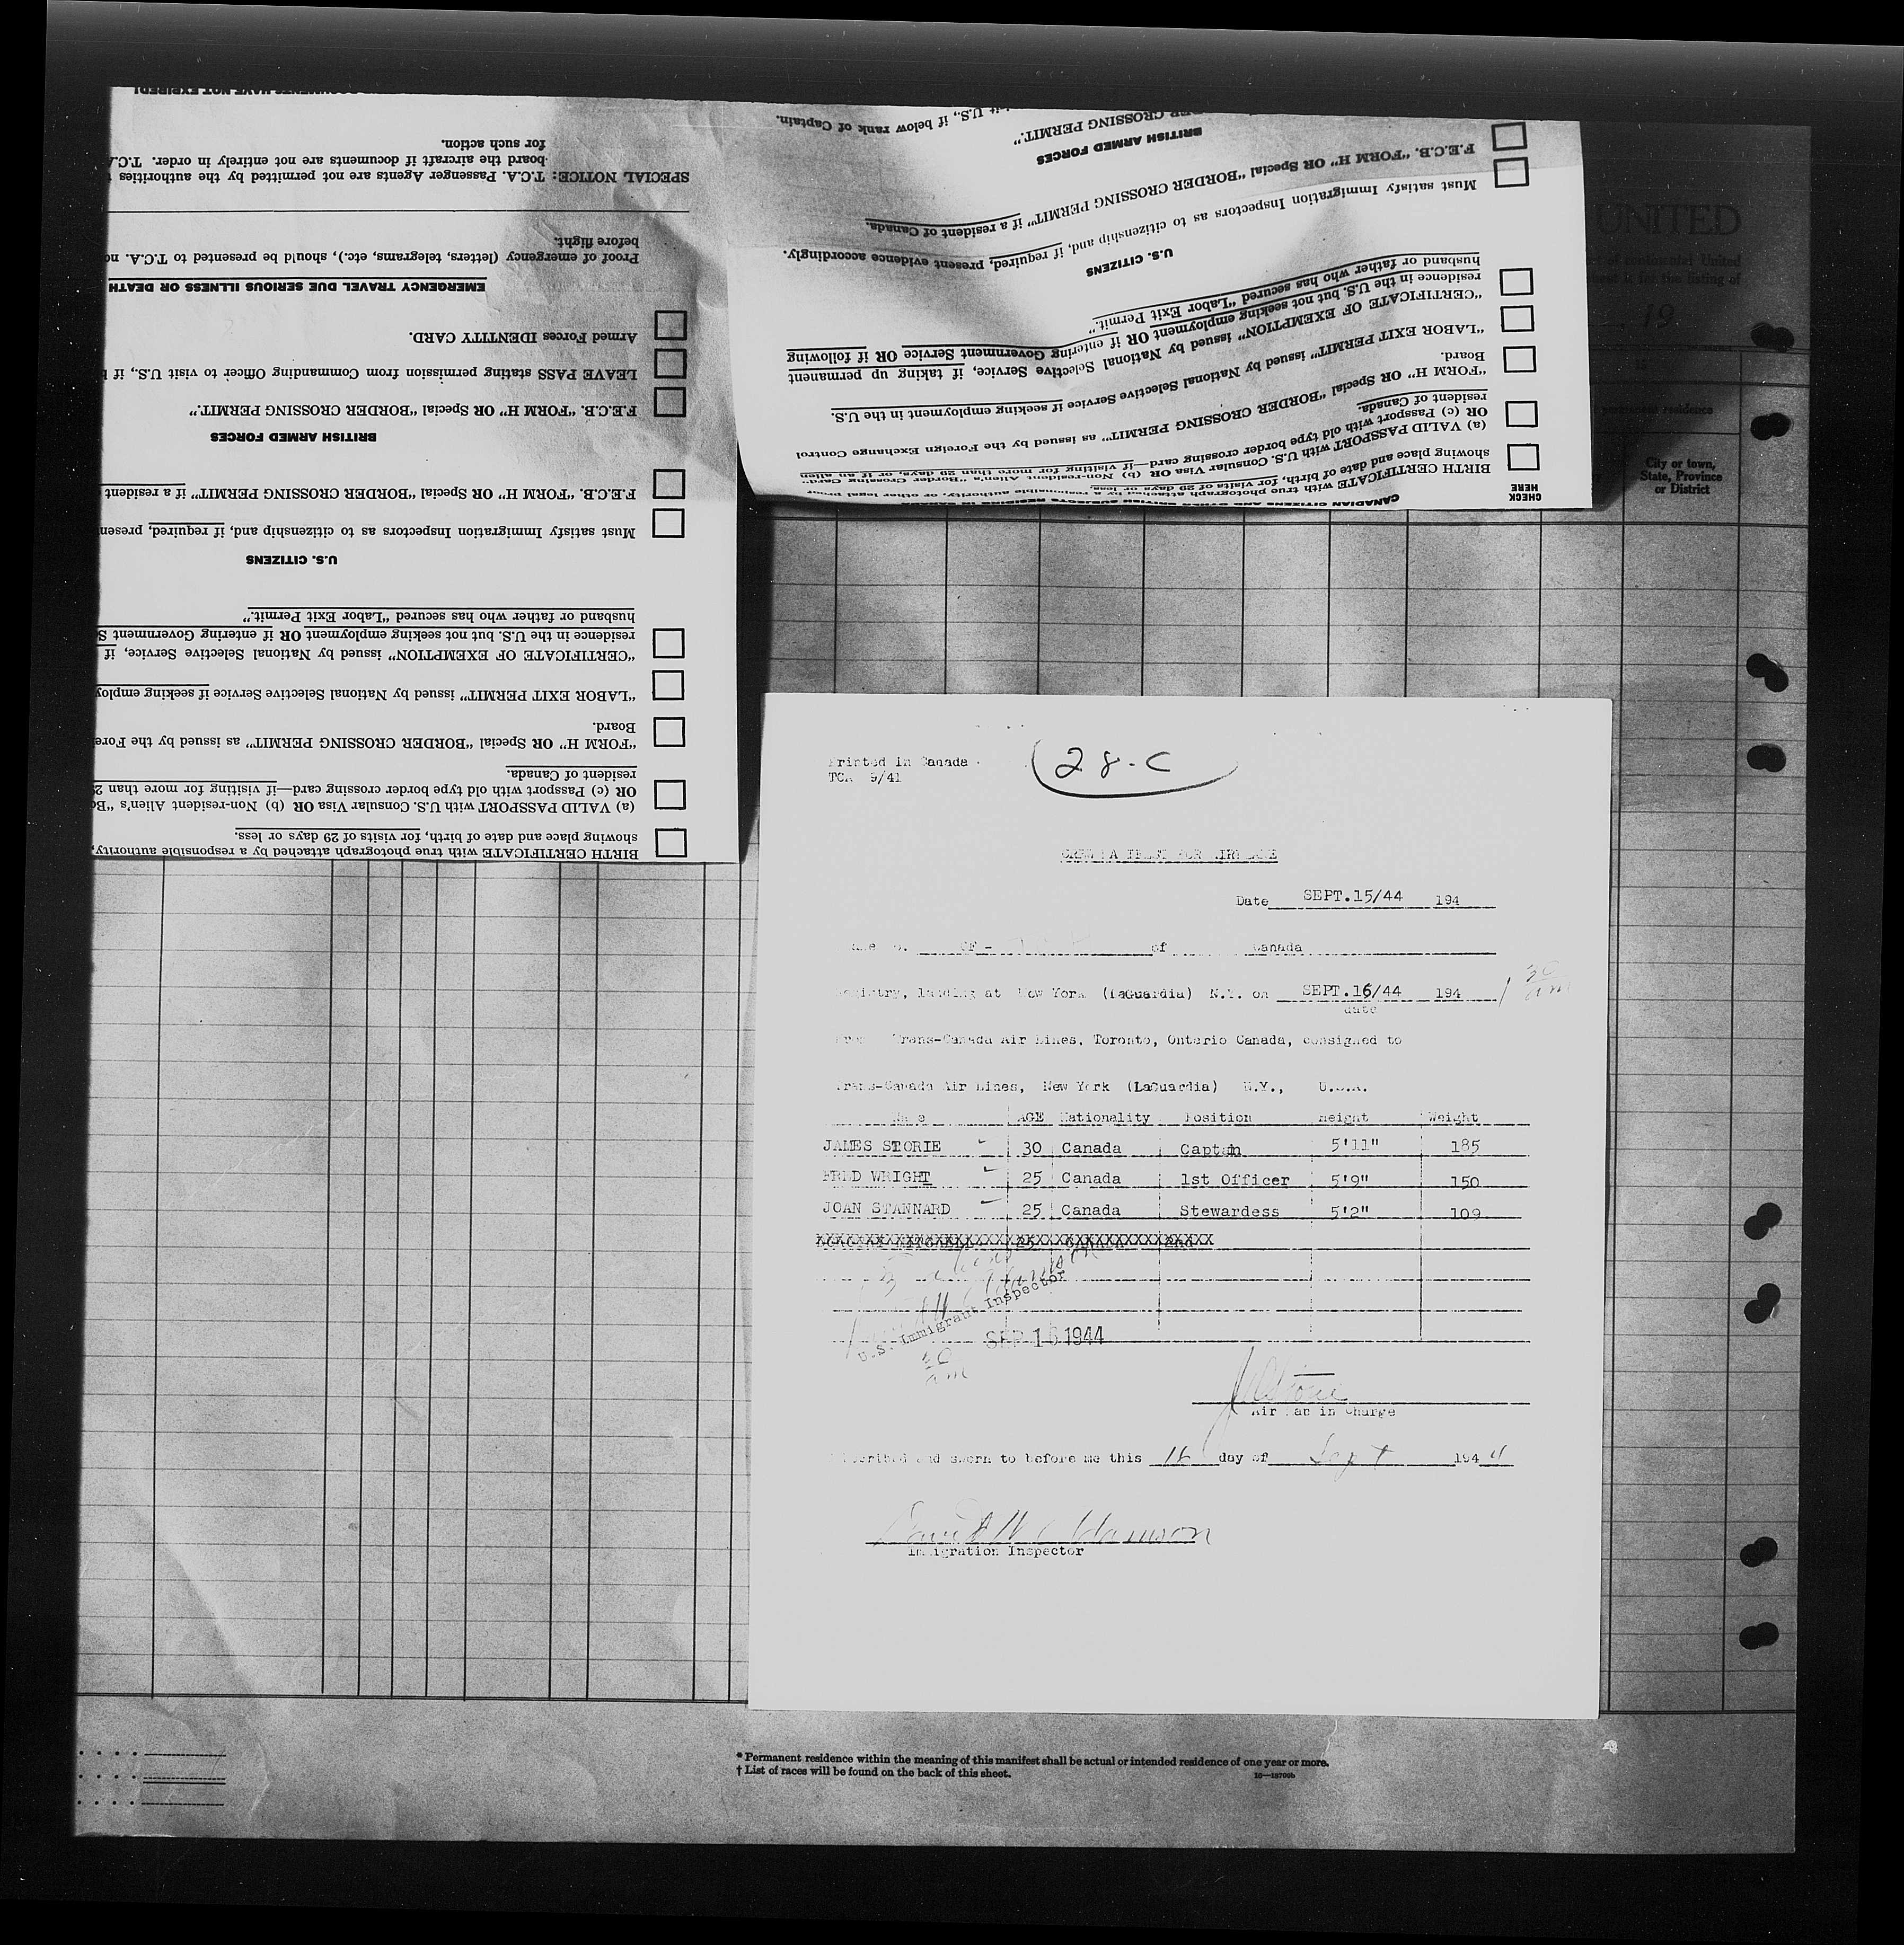 for such action.
board the aircraft if documents are not entirely in order. T.C.A.
SPECIAL NOTICE: T.C.A. Passenger Agents are not permitted by the authorities
before flight.
Proof of emergency (letters, telegrams, etc.), should be presented to T.C.A.
EMERGENCY TRAVEL DUE SERIOUS ILLNESS OR DEATH
Armed Forces IDENTITY CARD.
LEAVE PASS stating permission from Commanding Officer to visit U.S., if
F.E.C.B. "FORM H" OR Special "BORDER CROSSING PERMIT."
BRITISH ARMED FORCES
F.E.C.B. "FORM H" OR Special "BORDER CROSSING PERMIT" if a resident
Must satisfy Immigration Inspectors as to citizenship and, if required, present
U.S. CITIZENS
husband or father who has secured "Labor Exit Permit."
residence in the U.S. but not seeking employment OR if entering Government
"CERTIFICATE OF EXEMPTION" issued by National Selective Service, if
"LABOR EXIT PERMIT" issued by National Selective Service if seeking
Board.
"FORM H" OR Special "BORDER CROSSING PERMIT" as issued by the
resident of Canada.
OR (c) Passport with old type border crossing card—if visiting for more than
(a) VALID PASSPORT with U.S. Consular Visa OR (b) Non-resident Alien's
showing place and date of birth, for visits of 29 days or less.
BIRTH CERTIFICATE with true photograph attached by a responsible authority,
U.S., if below rank of Captain.
CROSSING PERMIT."
BRITISH ARMED FORCES
F.E.C.B. "FORM H" OR Special "BORDER CROSSING PERMIT" if a resident of Canada.
Must satisfy Immigration Inspectors as to citizenship and, if required, present evidence accordingly.
U.S. CITIZENS
husband or father who has secured "Labor Exit Permit."
residence in the U.S. but not seeking employment OR if entering Government Service OR if following
"CERTIFICATE OF EXEMPTION" issued by National Selective Service, if taking up permanent
"LABOR EXIT PERMIT" issued by National Selective Service if seeking employment in the U.S.
Board.
"FORM H" OR Special "BORDER CROSSING PERMIT" as issued by the Foreign Exchange Control
resident of Canada.
OR (c) Passport with old type border crossing card—if visiting for more than 29 days, or if an alien
(a) VALID PASSPORT with U.S. Consular Visa OR (b) Non-resident Alien's "Border Crossing Card"
showing place and date of birth, for visits of 29 days or less.
BIRTH CERTIFICATE with true photograph attached by a responsible authority, or other legal proof
CANADIAN CITIZENS AND OTHER BRITISH SUBJECTS RESIDING IN CANADA
CHECK
HERE
UNITED
United
listing of
19
permanent residence
City or town,
State, Province
or District
Printed in Canada
TCA 9/41
28-C
Date SEPT.15/44 194
CF - of Canada
Registry, landing at New York (LaGuardia) N.Y. on SEPT.16/44 194 1 30 am
date
From Trans-Canada Air Lines, Toronto, Ontario Canada, consigned to
Trans-Canada Air Lines, New York (LaGuardia) N.Y., U.S.A.
Name AGE Nationality Position Height Weight
JAMES STORIE 30 Canada Captain 5'11" 185
FRED WRIGHT 25 Canada 1st Officer 5'9" 150
JOAN STANNARD 25 Canada Stewardess 5'2" 109
U.S. Immigrant Inspector
SEP 16 1944
30
am
Air Man in Charge
Subscribed and sworn to before me this 16 day of Sept 1944
Immigration Inspector
* Permanent residence within the meaning of this manifest shall be actual or intended residence of one year or more.
† List of races will be found on the back of this sheet.